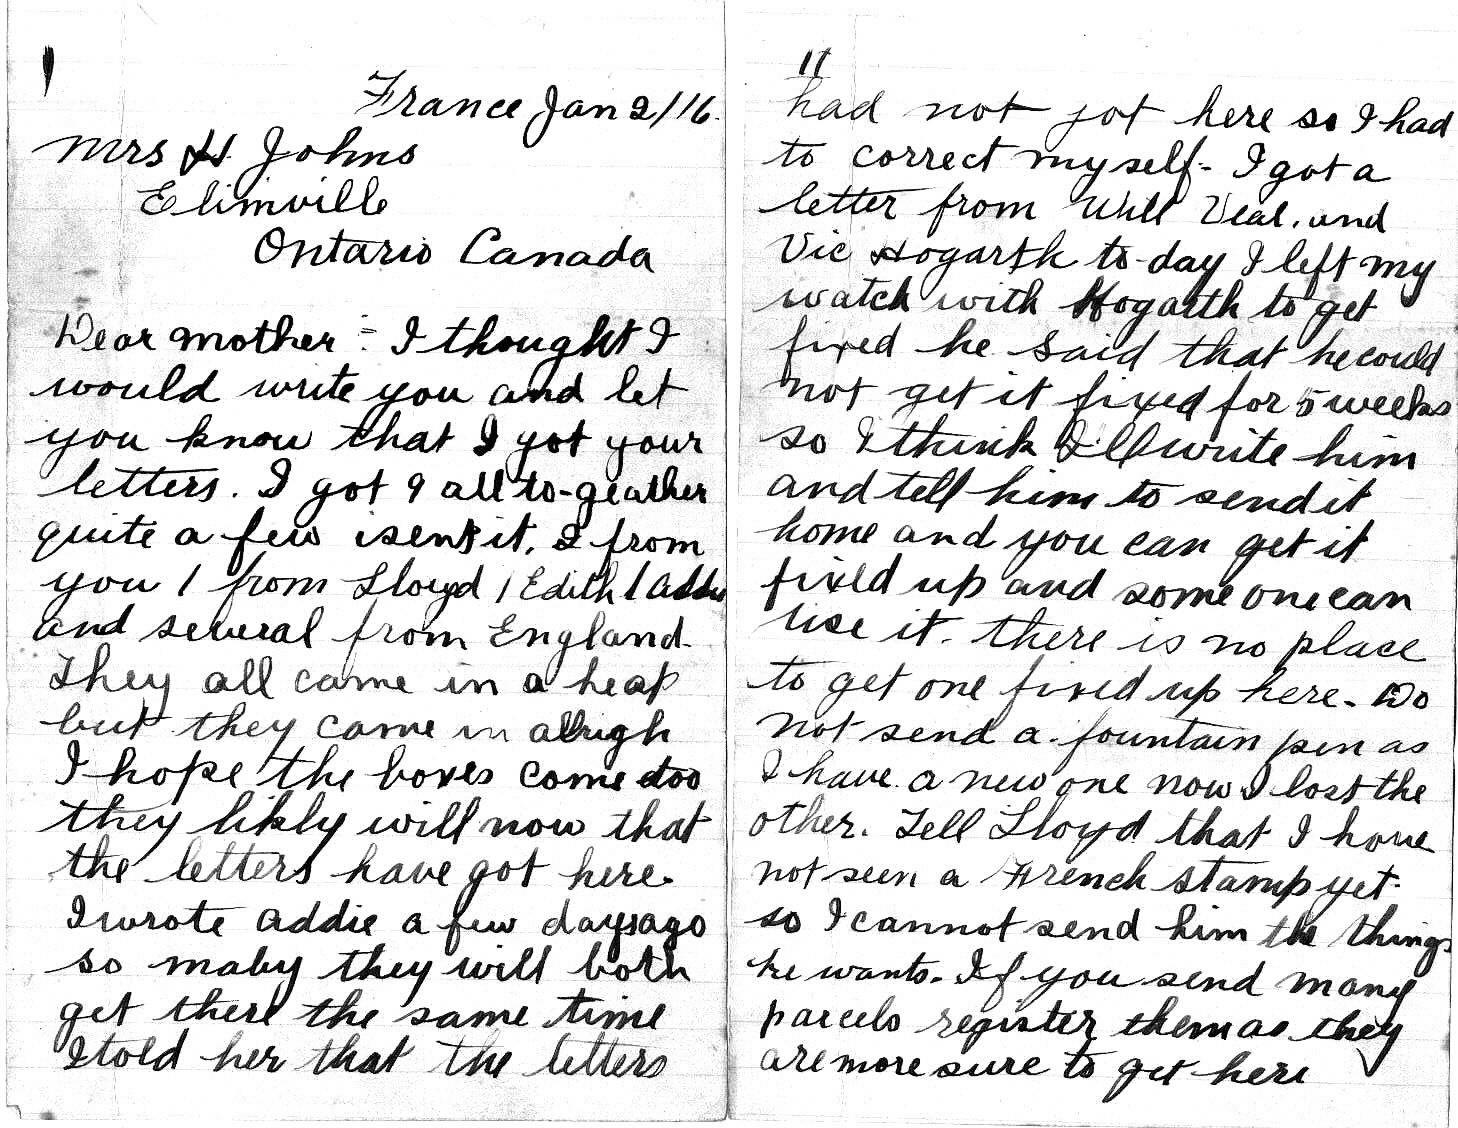 France Jan 2/16.
Mrs H. Johns
Elimville
Ontario Canada
Dear mother:- I thought I
would write you and let
you know that I got your
letters. I got 9 all to-geather
quite a few isent it. 2 from
you 1 from Lloyd 1 Edith 1 Addie
and several from England.
They all came in a heap
but they came in alrigh
I hope the boxes come too
they likly will now that
the letters have got here.
I wrote addie a few days ago
so maby they will both
get there the same time
I told her that the letters
11
had not got here so I had
to correct myself- I got a
letter from Will Veal. and
Vic Hogarth to-day I left my
watch with Hogarth to get
fixed he said that he could
not get it fixed for 5 weeks
so I think Ill write him
and tell him to send it
home and you can get it
fixed up and some one can
use it. there is no place
to get one fixed up here. Do
not send a fountain pen as
I have a new one now I lost the
other. Tell Lloyd that I have
not seen a French stamp yet.
so I cannot send him the things
he wants. If you send many
parcels register them as they
are more sure to get here